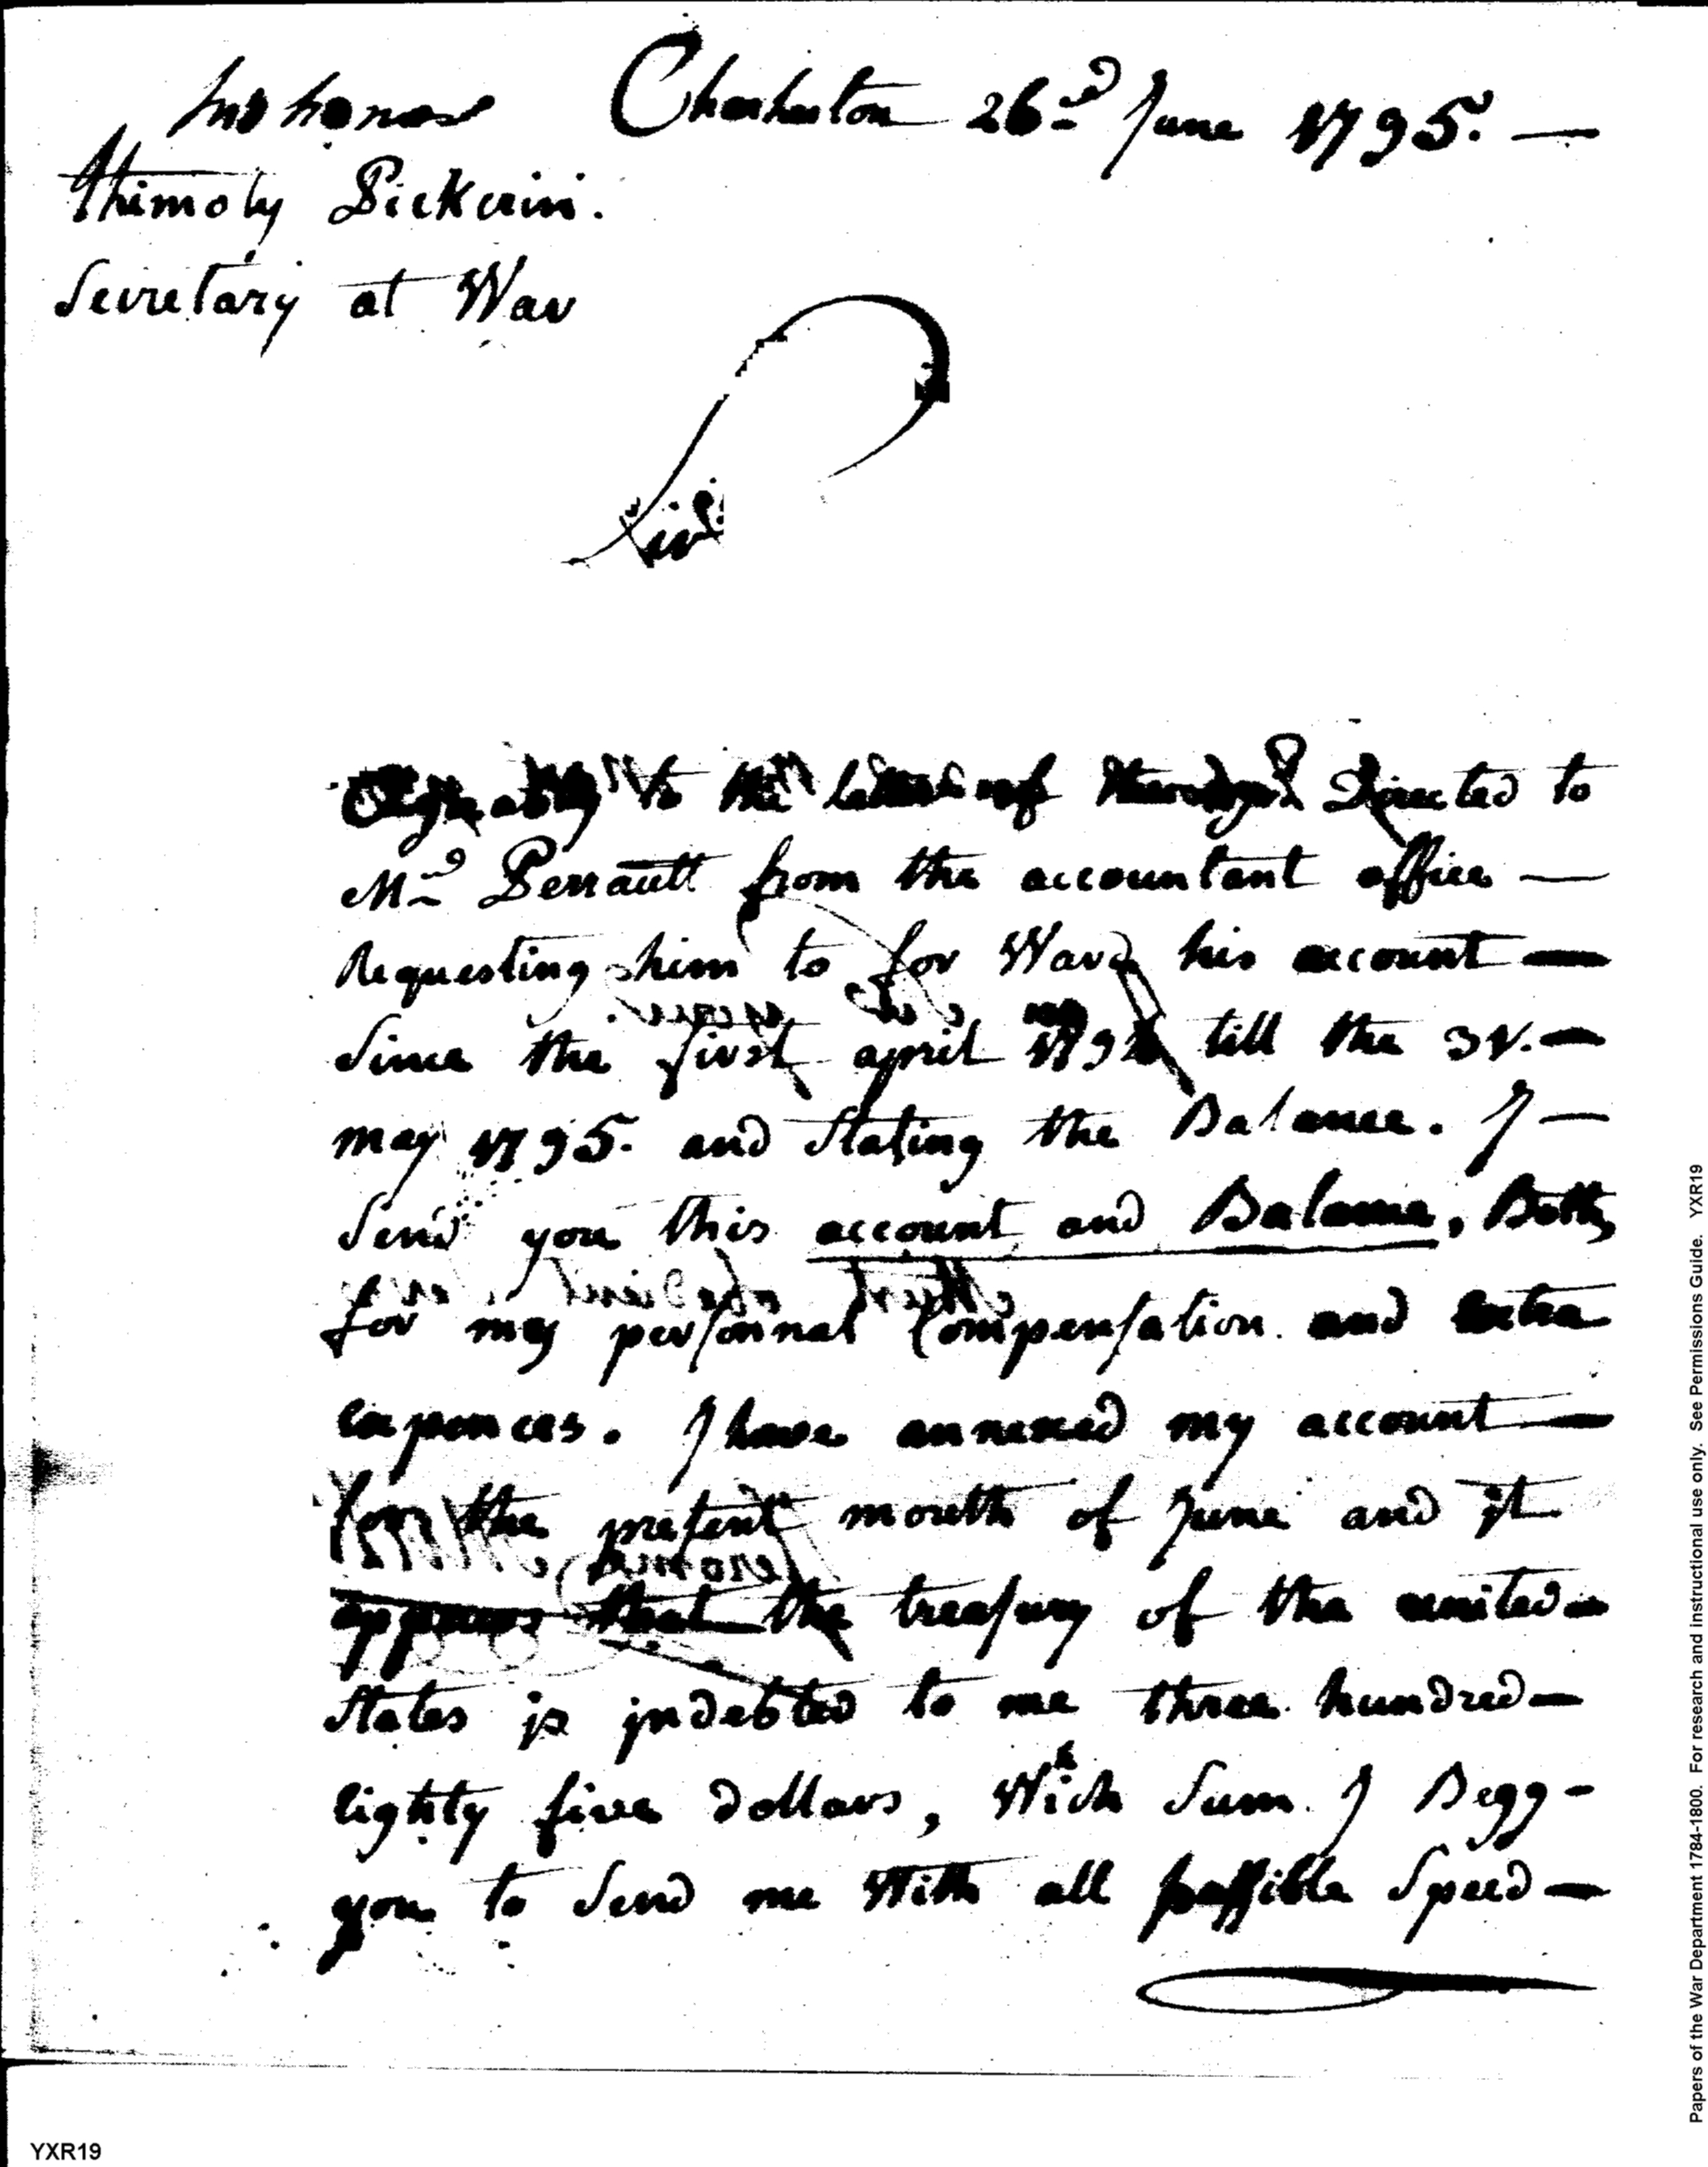 his honor Charleston 26.d June 1795. —
Thimoty Pickerin.
Secretary at War
Sir
to the letter of Directed to
Mr. Perrault from the accountant office —
Requesting him to for Ward his account —
Since the first april 179 till the 31. —
may 1795. and Stating the Balance. I —
Send you this account and Balance, Both
for my personnal Compensation and extra
expences. I have annexed my account —
for the present month of June and it
appears that the treasury of the united —
States is indebted to me three hundred —
Eighty five dollars, Which Sum I Begg -
you to Send me With all possible Speed —
YXR19
Papers of the War Department 1784-1800. For research and instructional use only. See Permissions Guide. YXR19